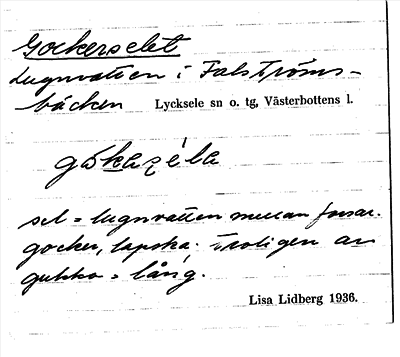 Gockerselet
Lugnvatten i Falströms-
bäcken Lycksele sn o. tg, Västerbottens l.
gåkazéla
sel = lugnvatten mellan forsar.
gocker, lapska. Troligen av
gukko = lång.
Lisa Lidberg 1936.